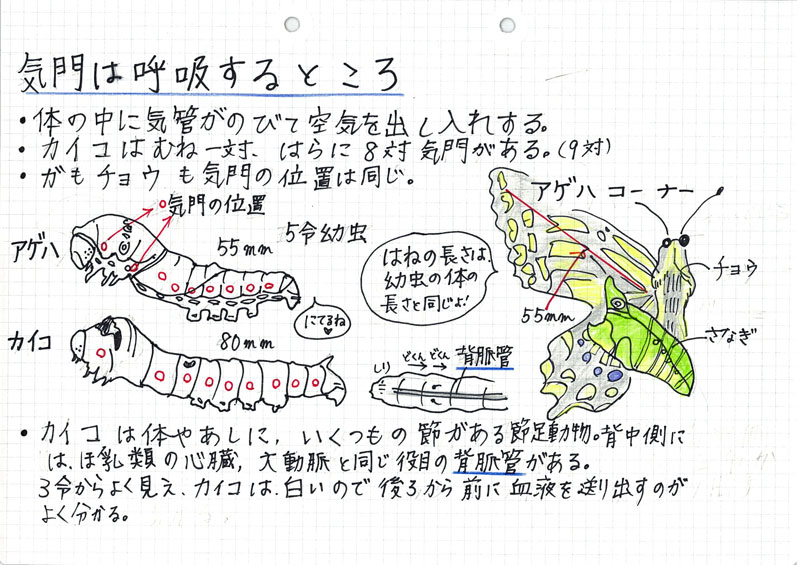 気門は呼吸するところ
・体の中に気管がのびて空気を出し入れする。
・カイコはむね一対、はらに8対気門がある。(9対)
・がもチョウも気門の位置は同じ。
気門の位置
アゲハ
55mm
5令幼虫
はねの長さは、
幼虫の体の
長さと同じよ!
アゲハコーナー
チョウ
55mm
さなぎ
にてるね
カイコ
80mm
しり
どくんどくん
背脈管
・カイコは体やあしに、いくつもの節がある節足動物。背中側に
は、ほ乳類の心臓,大動脈と同じ役目の背脈管がある。
3令からよく見え、カイコは、白いので後ろから前に血液を送り出すのが
よく分かる。